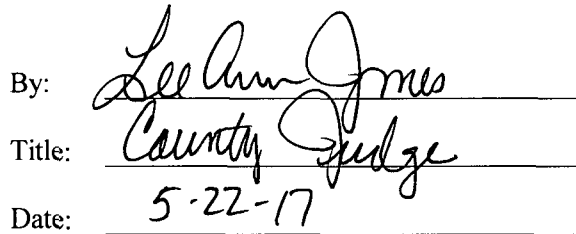 By: LeeAnn Jones
Title: County Judge
Date: 5-22-17